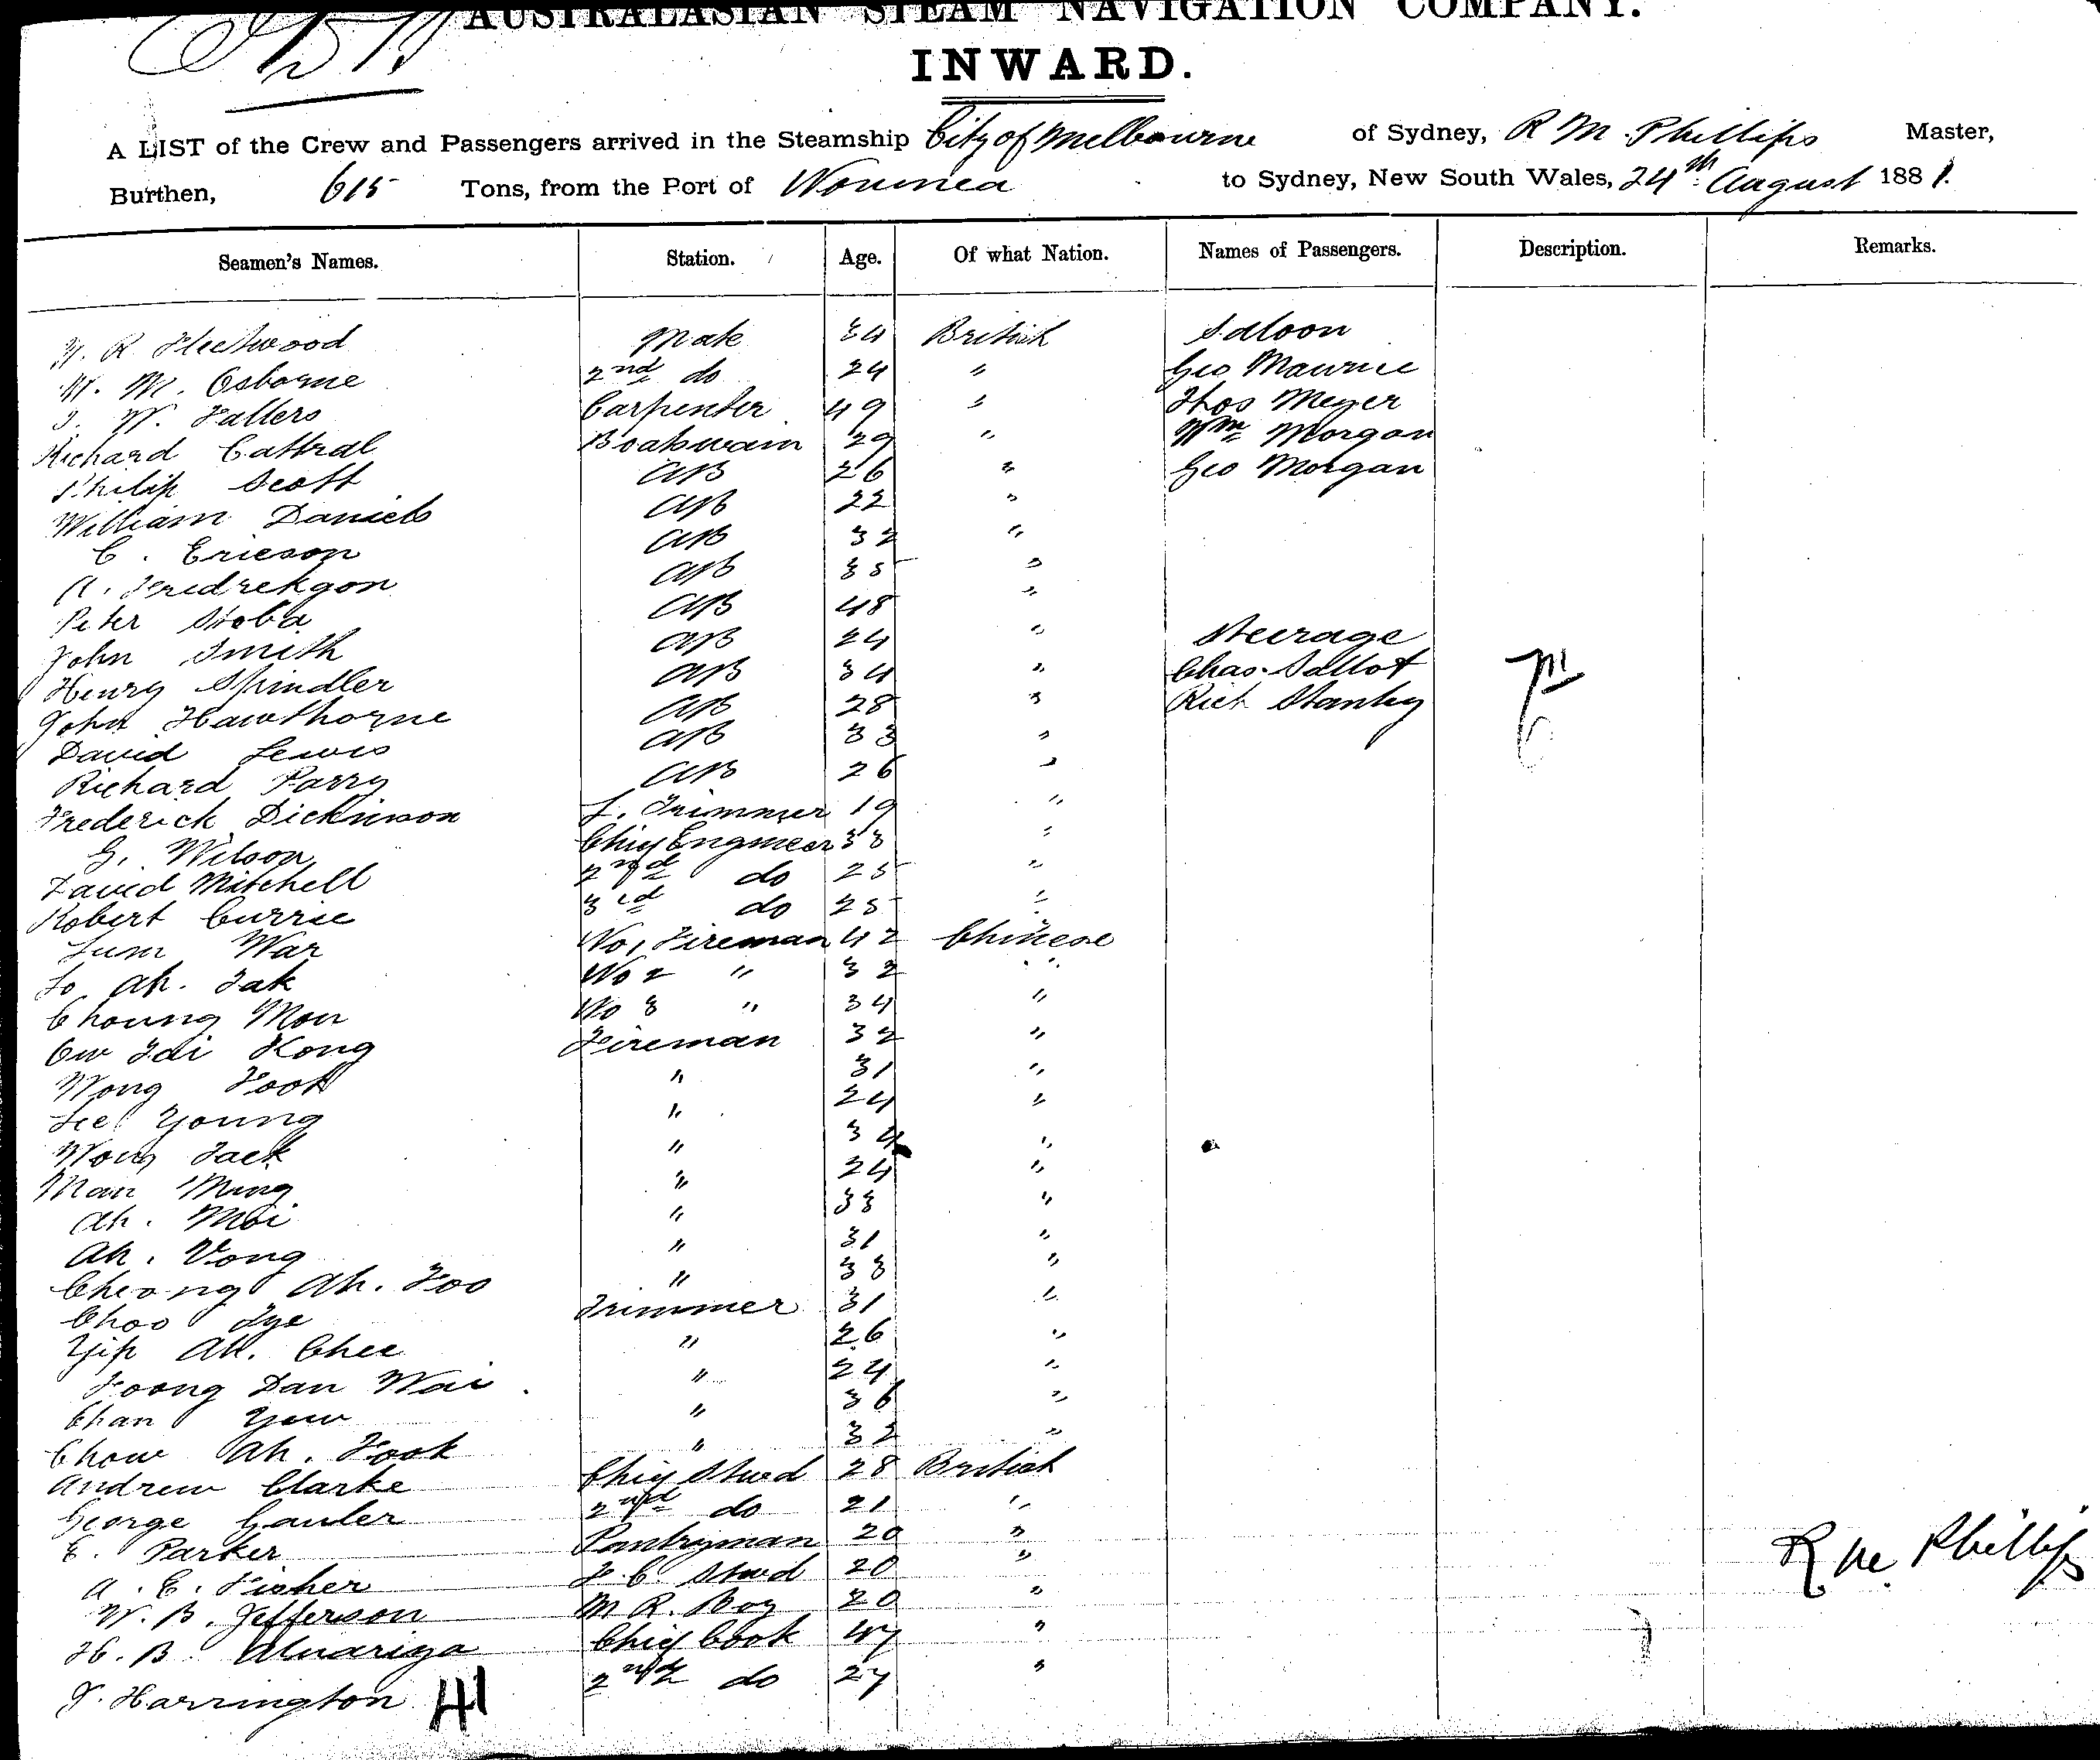 AUSTRALASIAN STEAM NAVIGATION COMPANY.
INWARD.
A LIST of the Crew and Passengers arrived in the Steamship City of Melbourne of Sydney, R M Phillips Master,
Burthen, 615 Tons, from the Port of Noumea to Sydney, New South Wales, 24th August 1881.
Seamen's Names. Station. Age. Of what Nation. Names of Passengers. Description. Remarks.
R Fleetwood Mate 34 British Saloon
W. M. Osborne 2nd do 24 " Geo Maurice
W. Fallers Carpenter 49 " Thos Meyer
Richard Cattral Boatswain 29 " Wm Morgan
Philip Scott AB 26 " Geo Morgan
William Daniels AB 22 "
C. Ericson AB 32 "
A. Fredrekson AB 35 "
Peter Stoba AB 48 "
John Smith AB 24 " Steerage
Henry Spindler AB 34 " Chas. Sallot
John Hawthorne AB 28 " Rich Stanley
David Lewis AB 33 "
Richard Parry AB 26 "
Frederick Dickinson L. Trimmer 19 "
G. Wilson Chief Engineer 33 "
David Mitchell 2nd do 25 "
Robert Currie 3rd do 25 "
Lum War No 1 Fireman 42 Chinese
Lo Ah. Tak No 2 " 32 "
Choung Mou No 3 " 34 "
Ow Tai Kong Fireman 32 "
Wong Fook " 31 "
Lee Young " 24 "
Wong Jack " 34 "
Man Ming " 24 "
Ah. Moi " 33 "
Ah. Vong " 31 "
Cheong Ah. Foo " 33 "
Choo Tye Trimmer 31 "
Yip Ah. Chee " 26 "
Foong Dan Wai " 24 "
Chan Yow " 36 "
Chow Ah. Fook " 32 "
Andrew Clarke Chief Stwd 28 British
George Gauler 2nd do 21 "
E. Parker Pantryman 20 "
A. E. Fisher F. C. Stwd 20 "
W. B. Jefferson M R. Boy 20 "
H. B. Aluariga Chief Cook 47 "
T. Harrington 2nd do 27 "
41
R M Phillips